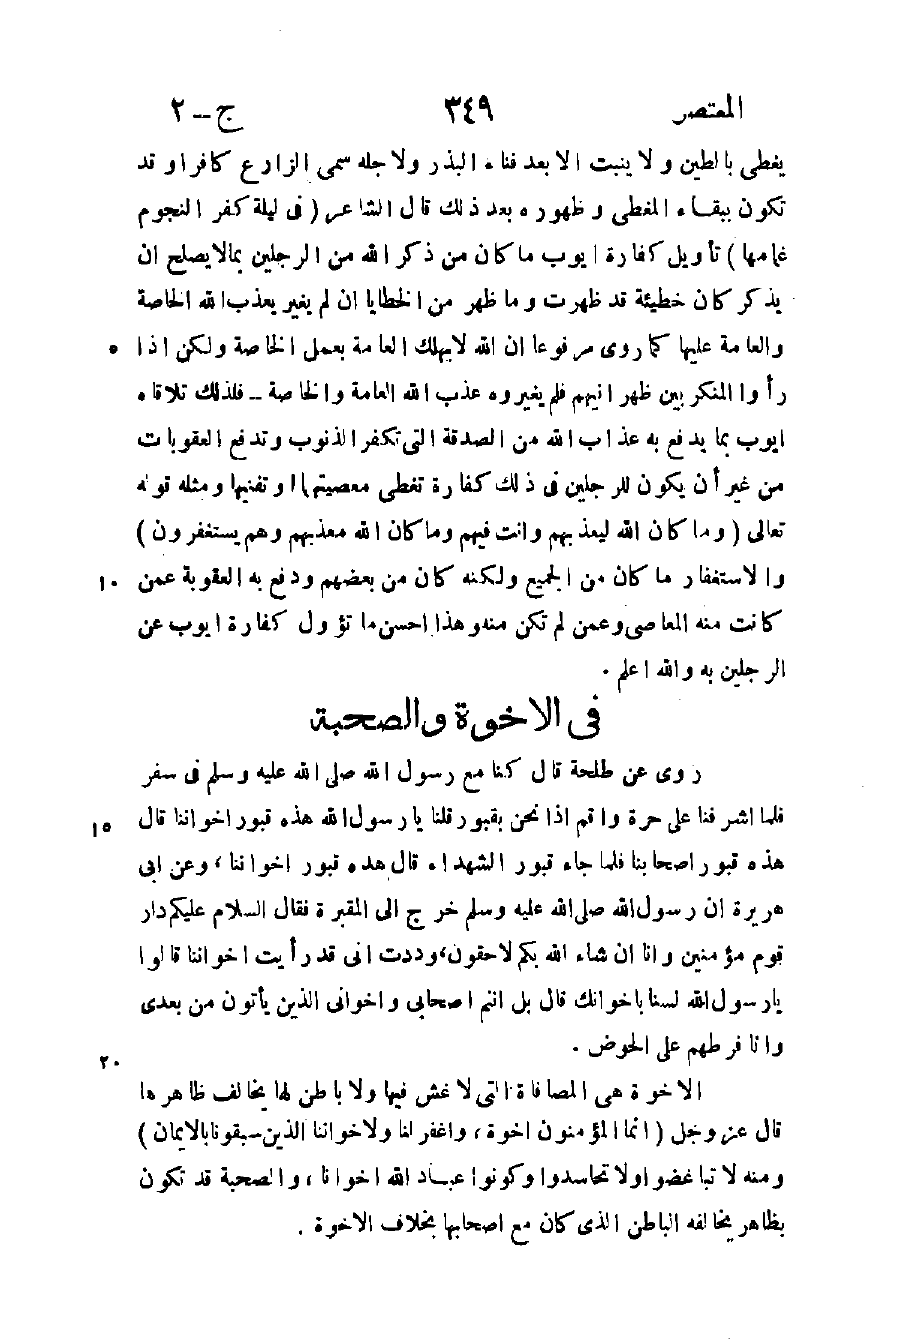 المعتصر ٣٤٩ ج – ٢
يغطى بالطين ولا ينبت الا بعد فناء البذر ولاجله سمى الزارع كافرا وقد
تكون ببقاء المغطى وظهوره بعد ذلك قال الشاعر ( فى ليلة كفر النجوم
غمامها ) تأويل كفارة ايوب ما كان من ذكر الله من الرجلين بما لا يصلح ان
يذكر كان خطيئة قد ظهرت وما ظهر من الخطايا ان لم يغير يعذب الله الخاصة
والعامة عليها كما روى مرفوعا ان الله لا يهلك العامة بعمل الخاصة ولكن اذا ٥
رأوا المنكر بين ظهرانيهم فلم يغيروه عذب الله العامة والخاصة – فلذلك تلافاه
ايوب بما يدفع به عذاب الله من الصدقة التى تكفر الذنوب وتدفع العقوبات
من غير أن يكون للرجلين فى ذلك كفارة تغطى معصيتهما او تفنيها ومثله قوله
تعالى ( وما كان الله ليعذبهم وانت فيهم وما كان الله معذبهم وهم يستغفرون )
والاستغفار ما كان من الجميع ولكنه كان من بعضهم ودفع به العقوبة عمن ١٠
كانت منه المعاصى وعمن لم تكن منه وهذا احسن ما تؤول كفارة ايوب عن
الرجلين به والله اعلم .
فى الاخوة والصحبة
روى عن طلحة قال كنا مع رسول الله صلى الله عليه وسلم فى سفر
فلما اشرفنا على حرة واقم اذا نحن بقبور قلنا يا رسول الله هذه قبور اخواننا قال ١٥
هذه قبور اصحابنا فلما جاء قبور الشهداء قال هذه قبور اخواننا ، وعن ابى
هريرة ان رسول الله صلى الله عليه وسلم خرج الى المقبرة فقال السلام عليكم دار
قوم مؤمنين وانا ان شاء الله بكم لاحقون، وددت انى قد رأيت اخواننا قالوا
يا رسول الله لسنا باخوانك قال بل انتم اصحابى واخوانى الذين يأتون من بعدى
وانا فرطهم على الحوض . ٢٠
الاخوة هى المصافاة التى لا غش فيها ولا باطن لها يخالف ظاهرها
قال عز وجل ( انما المؤمنون اخوة ، واغفر لنا ولاخواننا الذين سبقونا بالايمان )
ومنه لا تباغضوا ولا تحاسدوا وكونوا عباد الله اخوانا ، والصحبة قد تكون
بظاهر يخالفه الباطن الذى كان مع اصحابها بخلاف الاخوة .